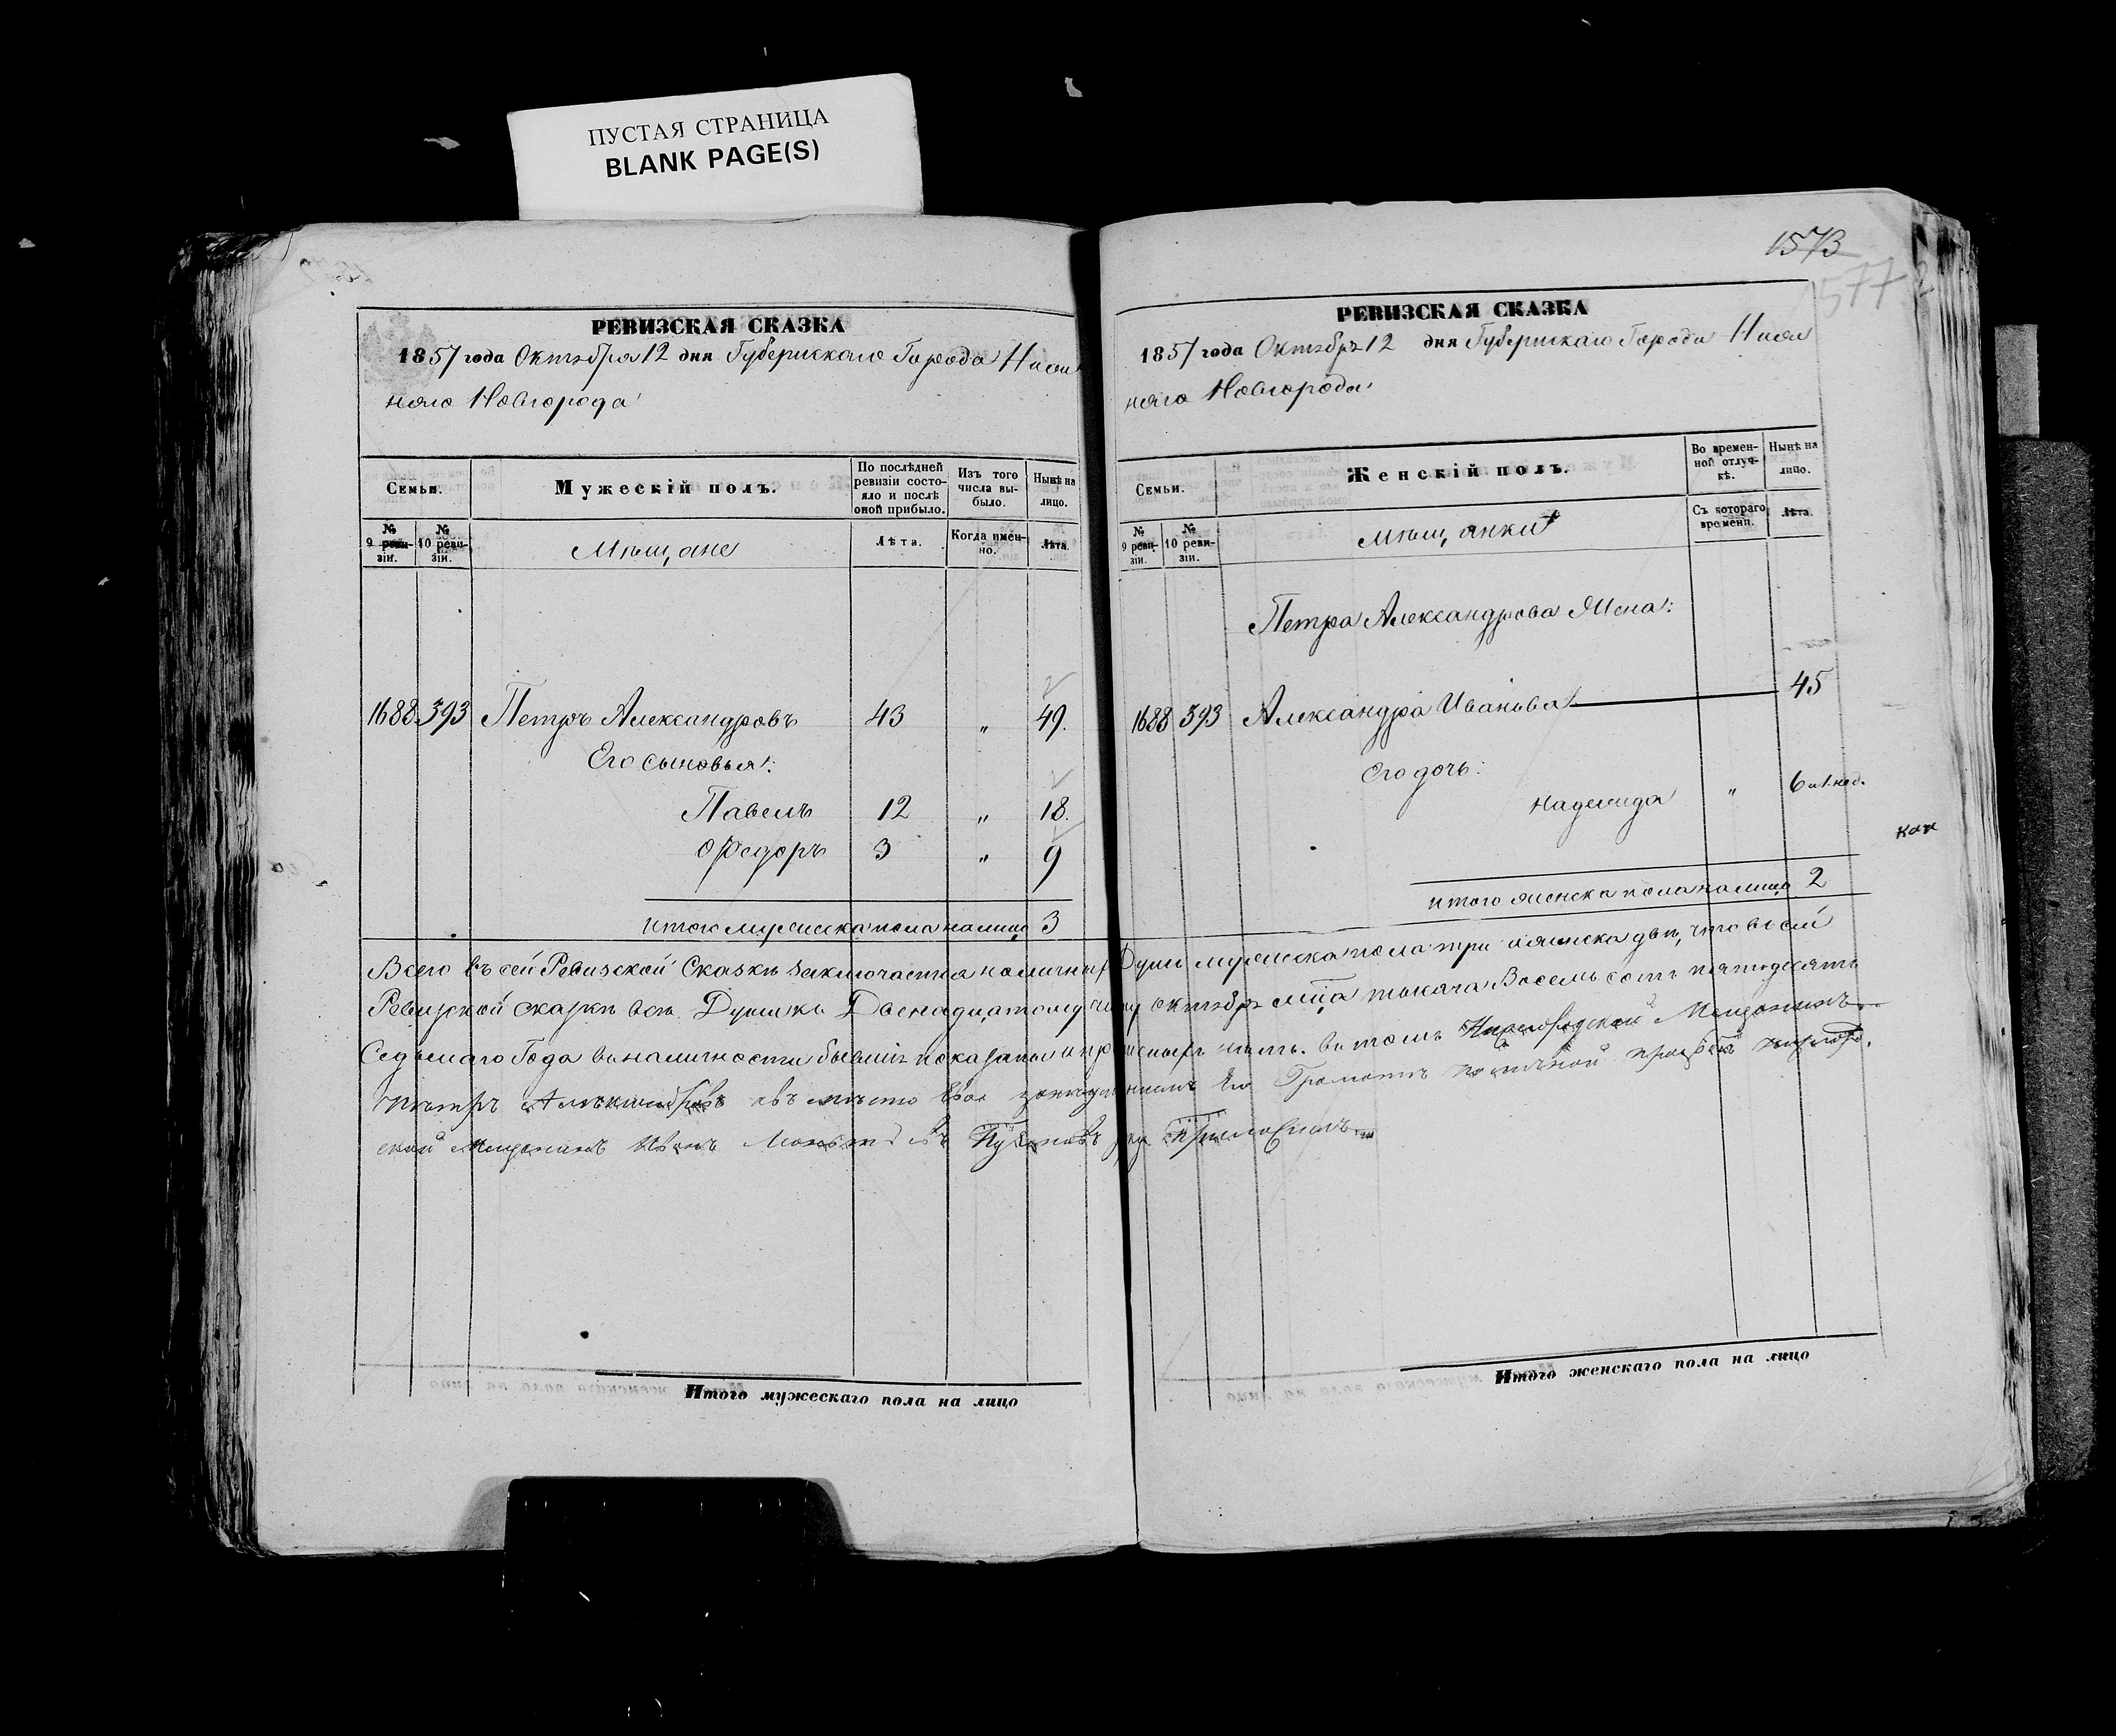 ПУСТАЯ СТРАНИЦА
BLANK PAGE(S)
РЕВИЗСКАЯ СКАЗКА
1857 года Октября 12 дня Губернскаго Города Ниж
няго Новгорода
Семьи.
Мужескій полъ.
По послѣдней ревизіи состо-
яло и послѣ
оной прибыло.
Изъ того
числа вы-
было.
Нынѣ на
лицо.
№
9 реви-
зіи.
№
10 реви-
зіи.
Мѣщане
Лѣта.
Когда имен-
но.
Лѣта.
1688 593 Петръ Александровъ 43 „ 49.
Его сыновья:
Павелъ 12 „ 18.
Федоръ 3 „ 9
итого мужеска пола налицо 3
1573
577
РЕВИЗСКАЯ СКАЗКА
1857 года Октября 12 дня Губернскаго Города Ниж
няго Новгорода
Семьи.
Женскій полъ.
Во времен-
ной отлуч-
кѣ.
Нынѣ на
лицо.
№
9 реви-
зіи.
№
10 реви-
зіи.
мѣщанки
Съ котораго
времени.
Лѣта.
Петра Александрова Жена:
1688 593 Александра Иванова 45
Его дочь:
Надежда „ 6 и 1. нед.
итого женска пола налицо 2
Всего въ сей Ревизской Сказкѣ заключается наличныхъ Душъ мужеска пола три и женска двѣ, что въ сей
Ревизской сказкѣ всѣ Души къ Двенадцатому числу октября мца тысяча Восемь сотъ пятьдесятъ
Седьмаго Года въ наличности бывшіе показаны и прописныхъ нетъ. въ томъ Нижегородской Мещанинъ
Петръ Александровъ а вместо Его Грамоте по личной прозбе нижегород
ской мещанинъ Иванъ руку приложилъ
Итого мужескаго пола на лицо
Итого женскаго пола на лицо